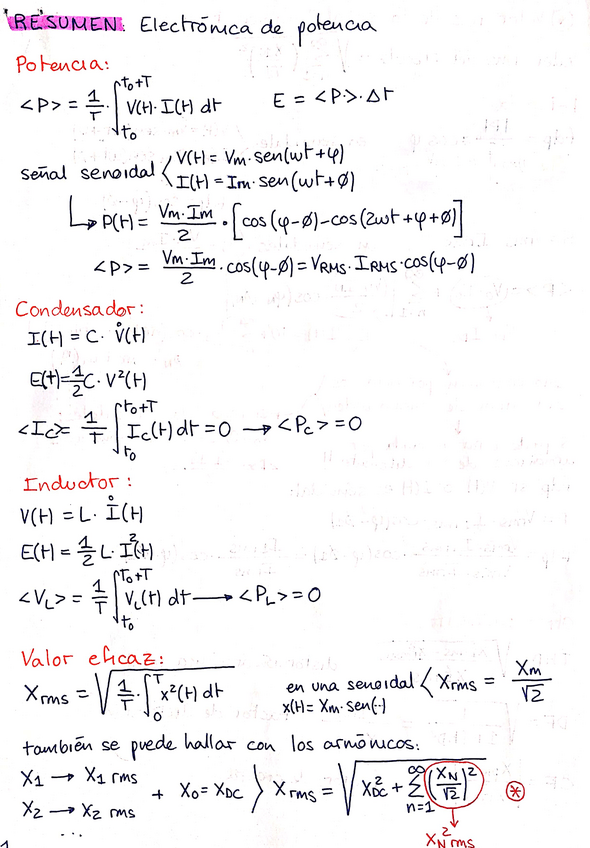 RESUMEN: Electrónica de potencia
Potencia:
<P> = 1/T · ∫_{t₀}^{t₀+T} V(t)·I(t) dt    E = <P>·Δt
señal senoidal < V(t) = Vm·sen(wt+φ)
I(t) = Im·sen(wt+ø)
↳ P(t) = Vm·Im/2 · [cos(φ-ø)-cos(2wt+φ+ø)]
<P> = Vm·Im/2 · cos(φ-ø) = VRMS·IRMS·cos(φ-ø)
Condensador:
I(t) = C· V̊(t)
E(t) = 1/2 C· V²(t)
<Ic> = 1/T ∫_{t₀}^{t₀+T} Ic(t) dt = 0 → <Pc> = 0
Inductor:
V(t) = L· I̊(t)
E(t) = 1/2 L· I²(t)
<VL> = 1/T ∫_{t₀}^{T₀+T} VL(t) dt → <PL> = 0
Valor eficaz:
Xrms = √(1/T · ∫_0^T x²(t) dt)    en una senoidal < Xrms = Xm/√2
x(t) = Xm·sen(·)
también se puede hallar con los armónicos:
X1 → X1 rms
X2 → X2 rms
+ X₀ = XDC > Xrms = √(XDC² + Σ_{n=1}^{∞} (XN/√2)²) ⊛
...
XN² rms
1